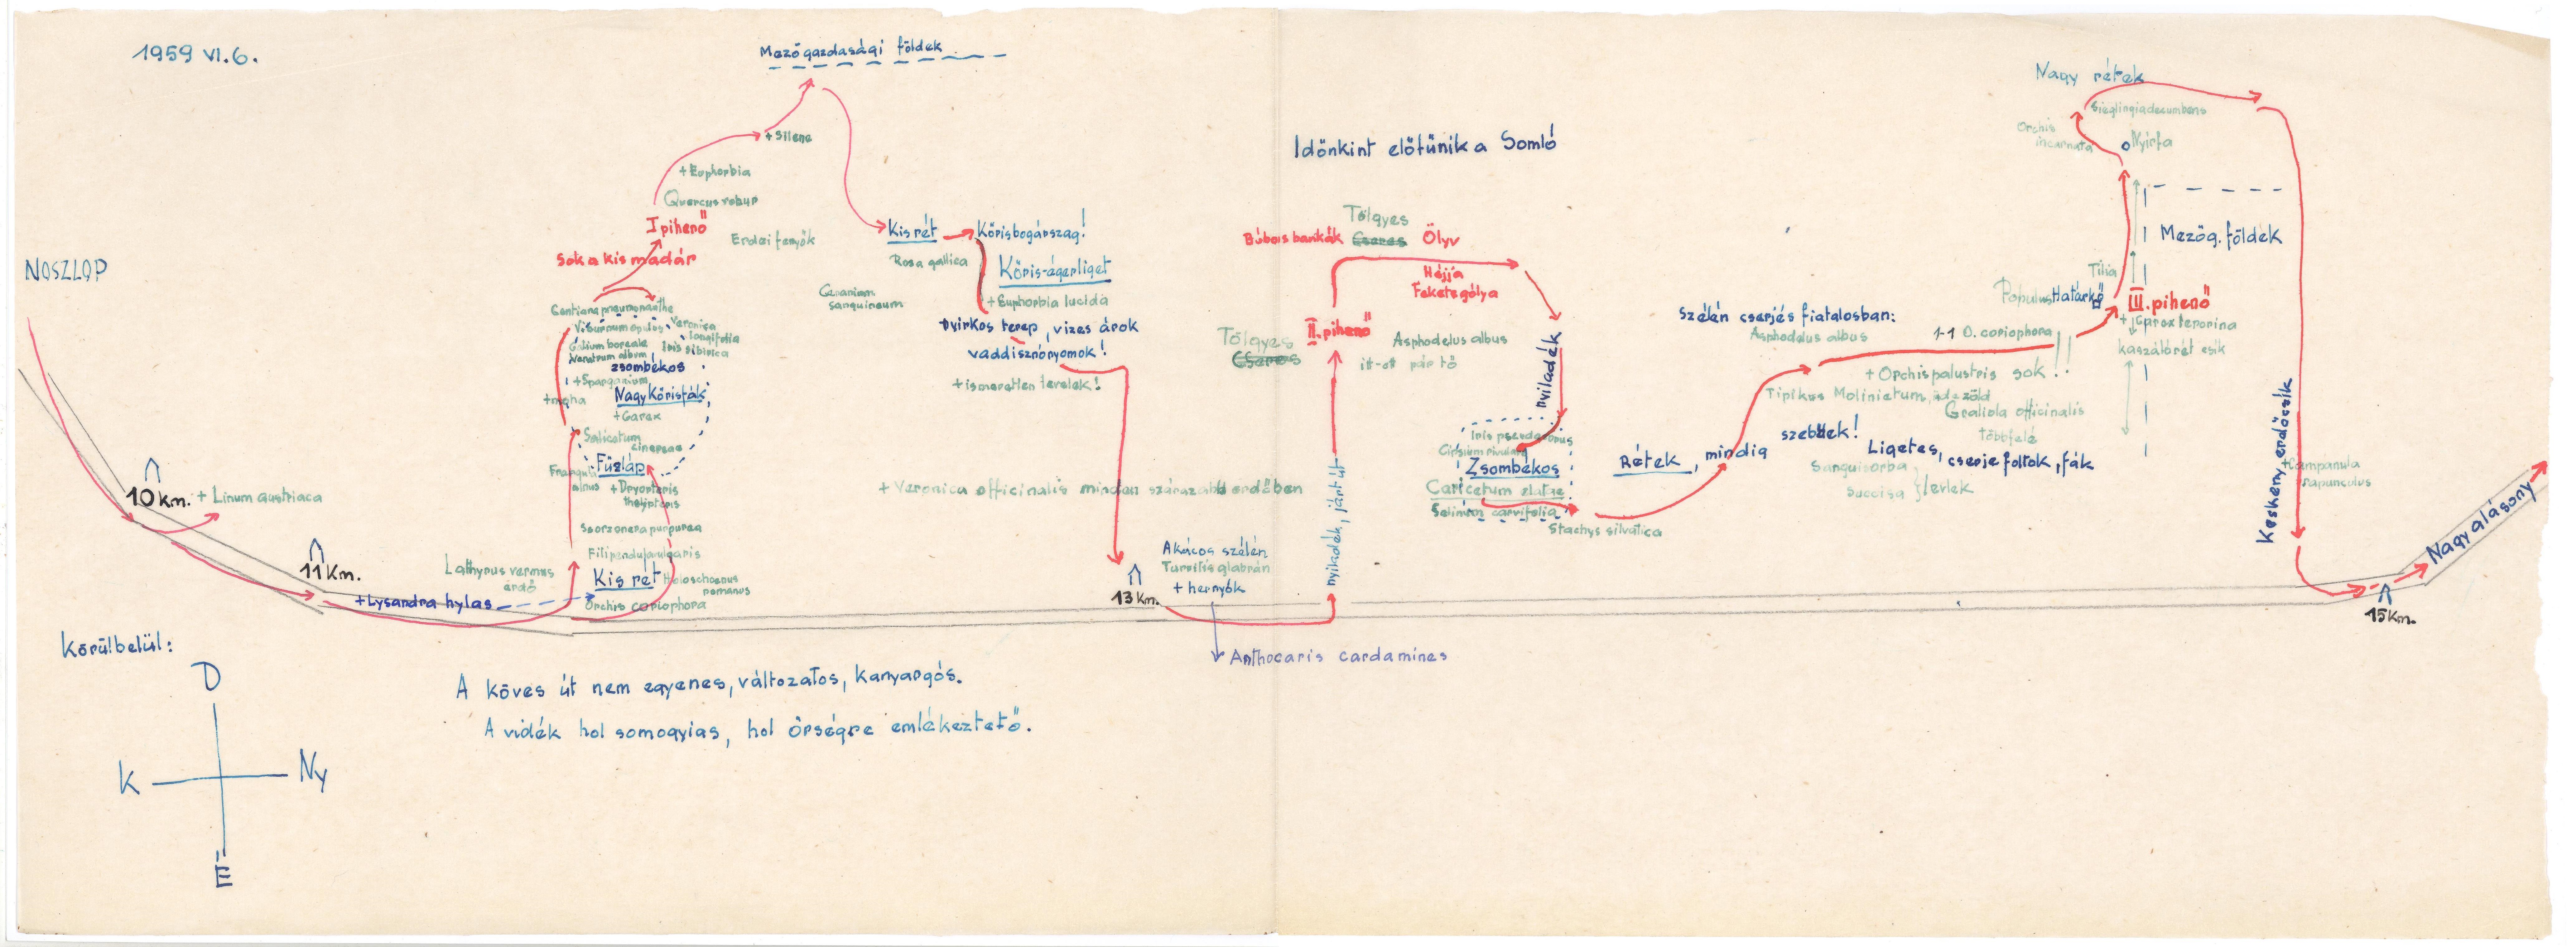 1959 VI.6.
Mezőgazdasági földek
+Silene
+Euphorbia
Quercus robur
I pihenő
Erdei fenyők
Sok a kis madár
NOSZLOP
Gentiana pneumonanthe
Viburnum opulus, Veronica
longifolia
Galium boreale
Iris sibirica
Veratrum album,
zsombékos
+Sparganium
+moha
Nagy Kőrisfák,
+Carex
Salicetum
cinereae
Fűzláp
Frangula
alnus
+Dryopteris
thelipteris
Scorzonera purpurea
Filipendula vulgaris
Kis rét
Holoschoenus
romanus
Orchis coriophora
Lathyrus vernus
erdő
+Lysandra hylas
10 km.
+ Linum austriaca
11 Km.
Kis rét
Kőrisbogárszag!
Rosa gallica
Kőris-égerliget
Geranium
sanguineum
+Euphorbia lucida
Nyirkos terep, vizes árok
vaddisznónyomok!
+ismeretlen levelek!
+ Veronica officinalis minden szárazabb erdőben
Akácos szélén
Turritis glabrán
+ hernyók
13 Km.
Anthocaris cardamines
Időnkint előtűnik a Somló
Tölgyes
Búbos bankák
Cseres
Ölyv
Héjja
Feketególya
Tölgyes
Cseres
II. pihenő
Asphodelus albus
itt-ott pár tő
nyiladék, járt út
nyiladék
Iris pseudacorus
Cirsium rivulare
Zsombékos
Caricetum elatae
Selinum carvifolia
Stachys silvatica
Rétek, mindig
szebbek!
Szélén cserjés fiatalosban:
Asphodelus albus
1-1 O. coriophora
+ Orchis palustris sok!!
Tipikus Molinietum, üdezöld
Gratiola officinalis
többfelé
Ligetes, cserje foltok, fák
Sanguisorba
Succisa } levlek
Nagy rétek
Sieglingia decumbens
Orchis
incarnata
Nyírfa
Mezőg. földek
Tilia
Populus
Határkő
III. pihenő
+Carex leporina
kaszálórét csík
Keskeny erdőcsík
+Campanula
rapunculus
Nagyalásony
15 Km.
Körülbelül:
D
K
Ny
É
A köves út nem egyenes, változatos, kanyargós.
A vidék hol somogyias, hol őrségre emlékeztető.